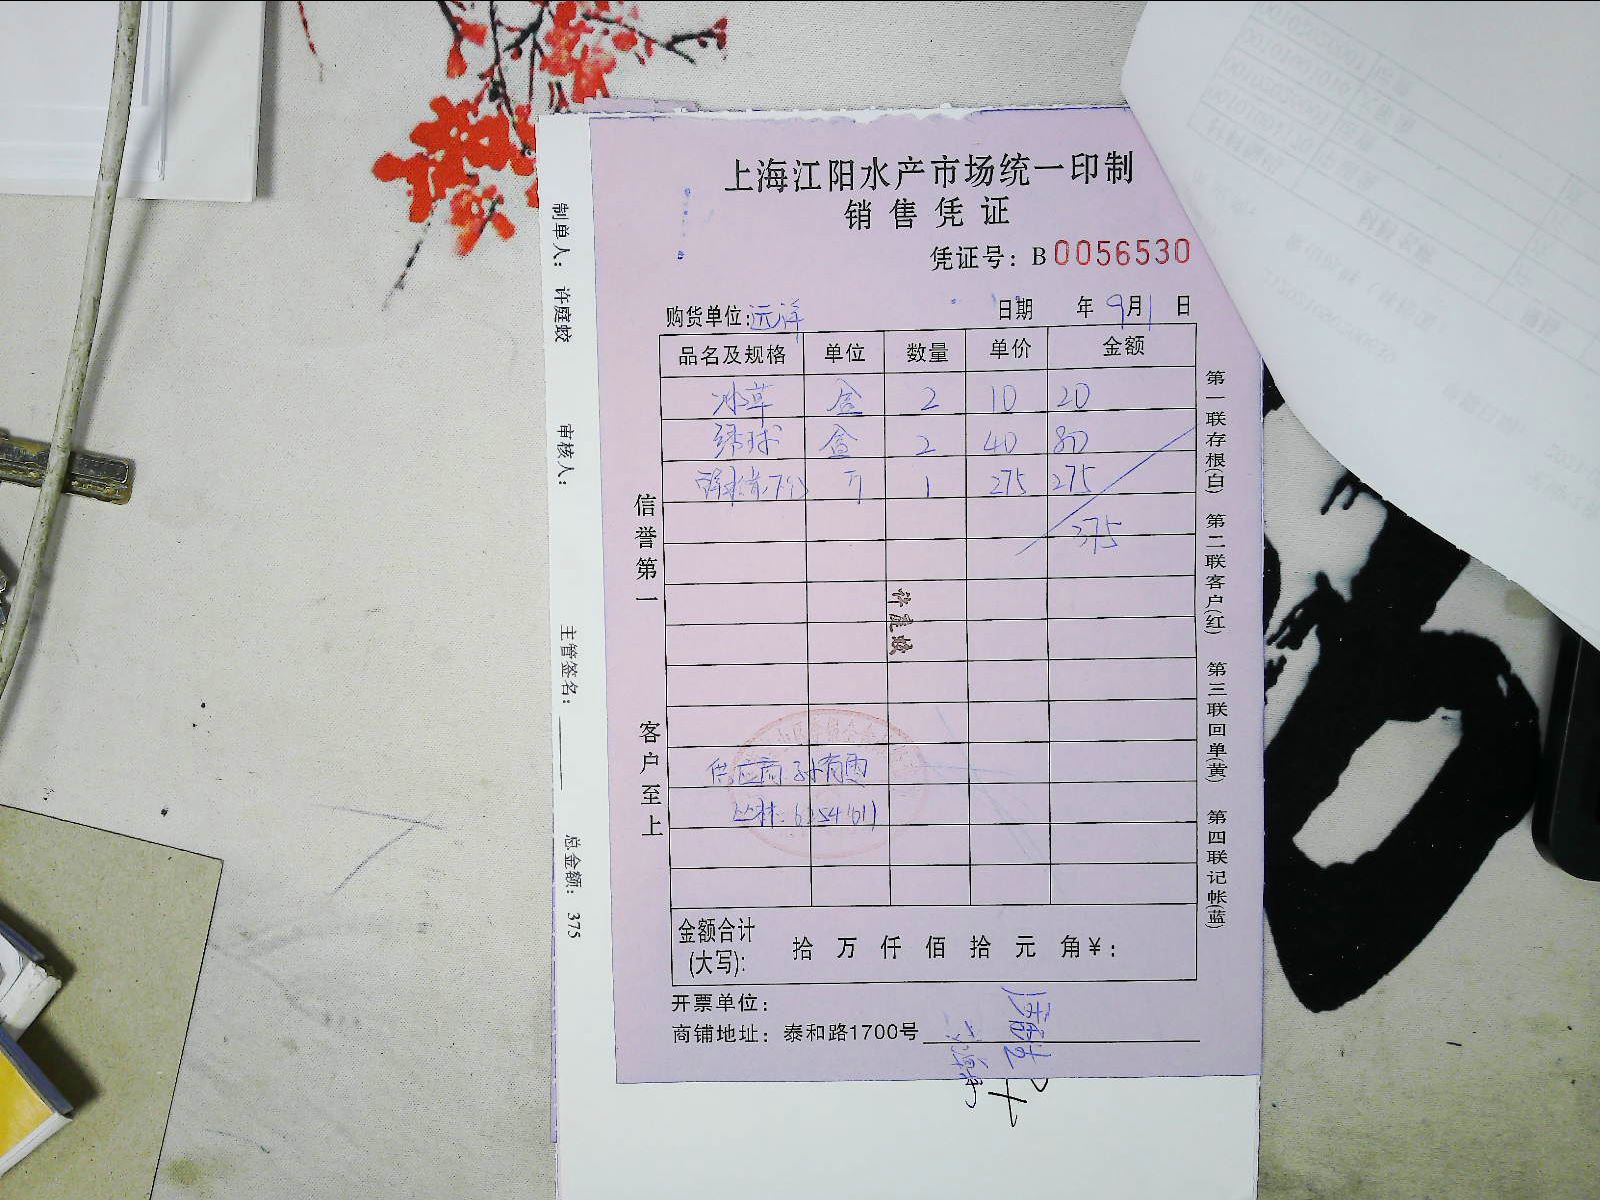 上海江阳水产市场统一印制
销售凭证
凭证号：B0056530
购货单位:远洋 日期 年9月1日
品名及规格 单位 数量 单价 金额
冰草 盒 2 10 20
绿球 盒 2 40 80
1 275 275
375
许庭蛟
供应商:孙有雨
信誉第一 客户至上
第一联存根(白) 第二联客户(红) 第三联回单(黄) 第四联记帐(蓝)
金额合计(大写): 拾 万 仟 佰 拾 元 角 ¥:
开票单位：
商铺地址：泰和路1700号
制单人： 许庭蛟 审核人： 主管签名： 总金额： 375